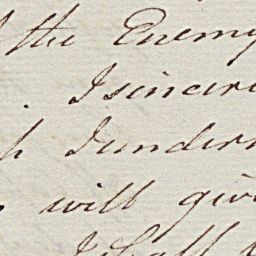 the Enemy
. I sincere
h I unders
will give
I shall